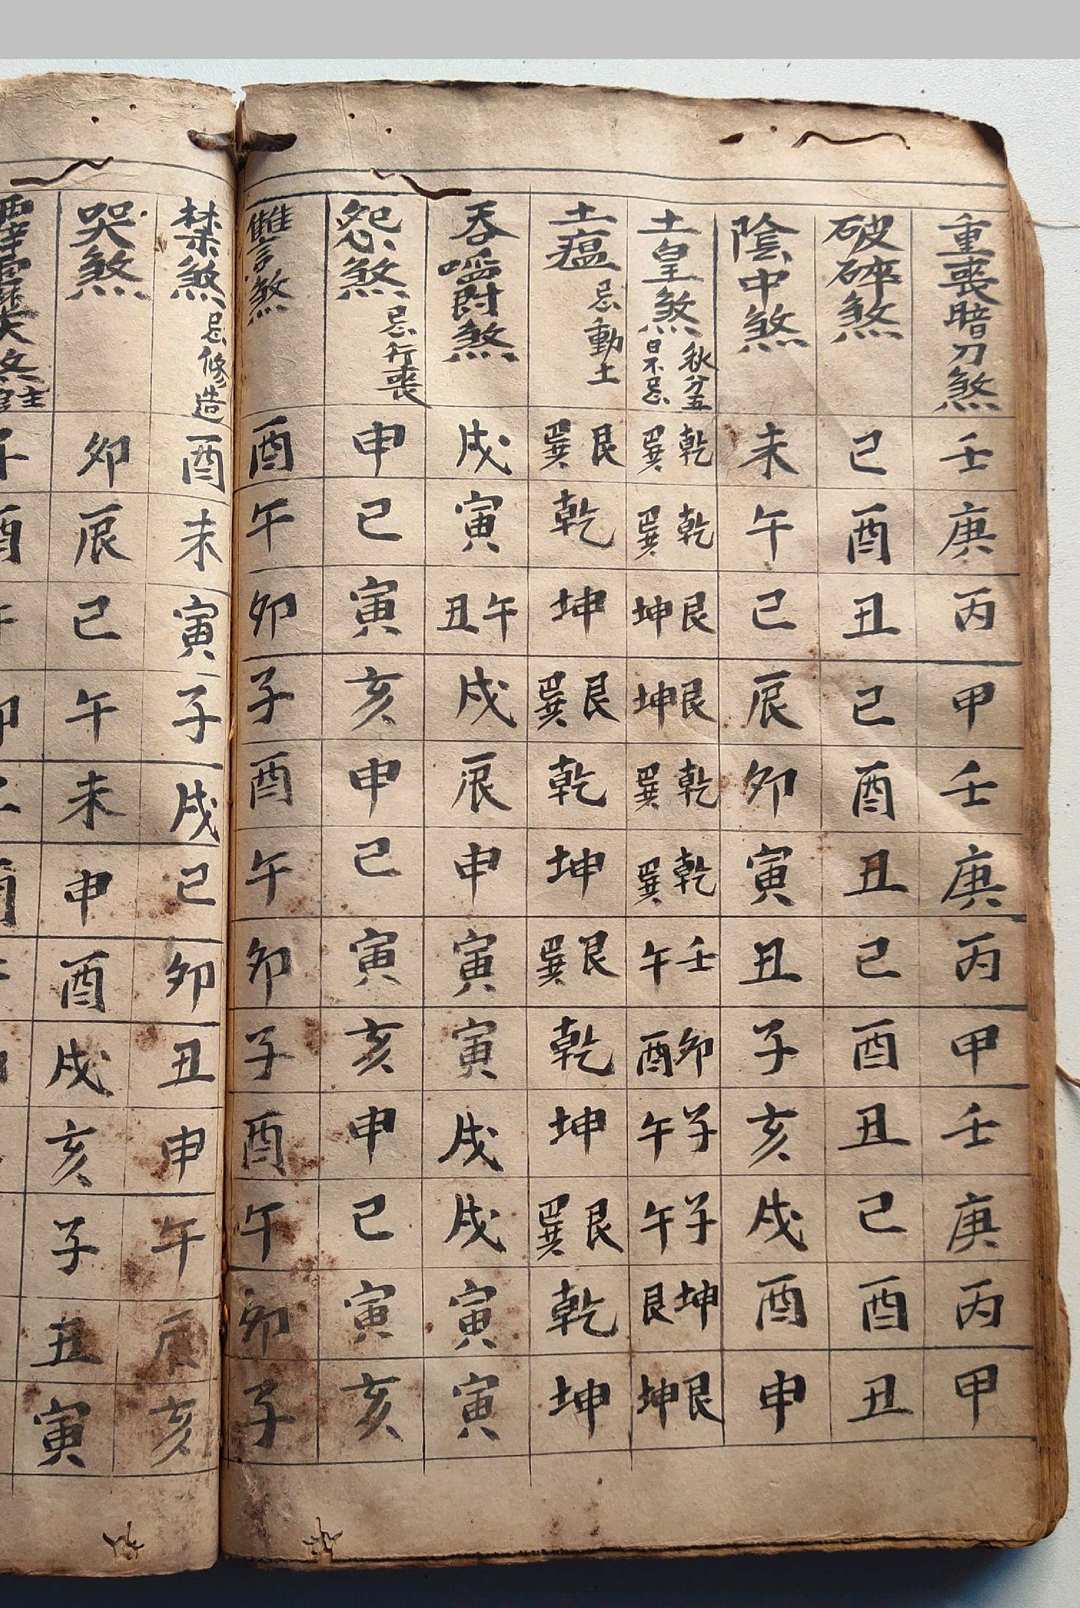 重喪暗刀煞 壬 庚 丙 甲 壬 庚 丙 甲 壬 庚 丙 甲
破碎煞 巳 酉 丑 巳 酉 丑 巳 酉 丑 巳 酉 丑
陰中煞 未 午 巳 辰 卯 寅 丑 子 亥 戌 酉 申
土皇煞 秋分五日不忌 乾巽 乾巽 艮坤 艮坤 乾巽 乾巽 壬午 卯酉 子午 子午 坤艮 艮坤
土瘟 忌動土 艮巽 乾 坤 艮巽 乾 坤 艮巽 乾 坤 艮巽 乾 坤
吞嚼煞 戌 寅 午丑 戌 辰 申 寅 寅 戌 戌 寅 寅
怨煞 忌行喪 申 巳 寅 亥 申 巳 寅 亥 申 巳 寅 亥
讐煞 酉 午 卯 子 酉 午 卯 子 酉 午 卯 子
禁煞 忌修造 酉 未 寅 子 戌 巳 卯 丑 申 午 辰 亥
哭煞 卯 辰 巳 午 未 申 酉 戌 亥 子 丑 寅